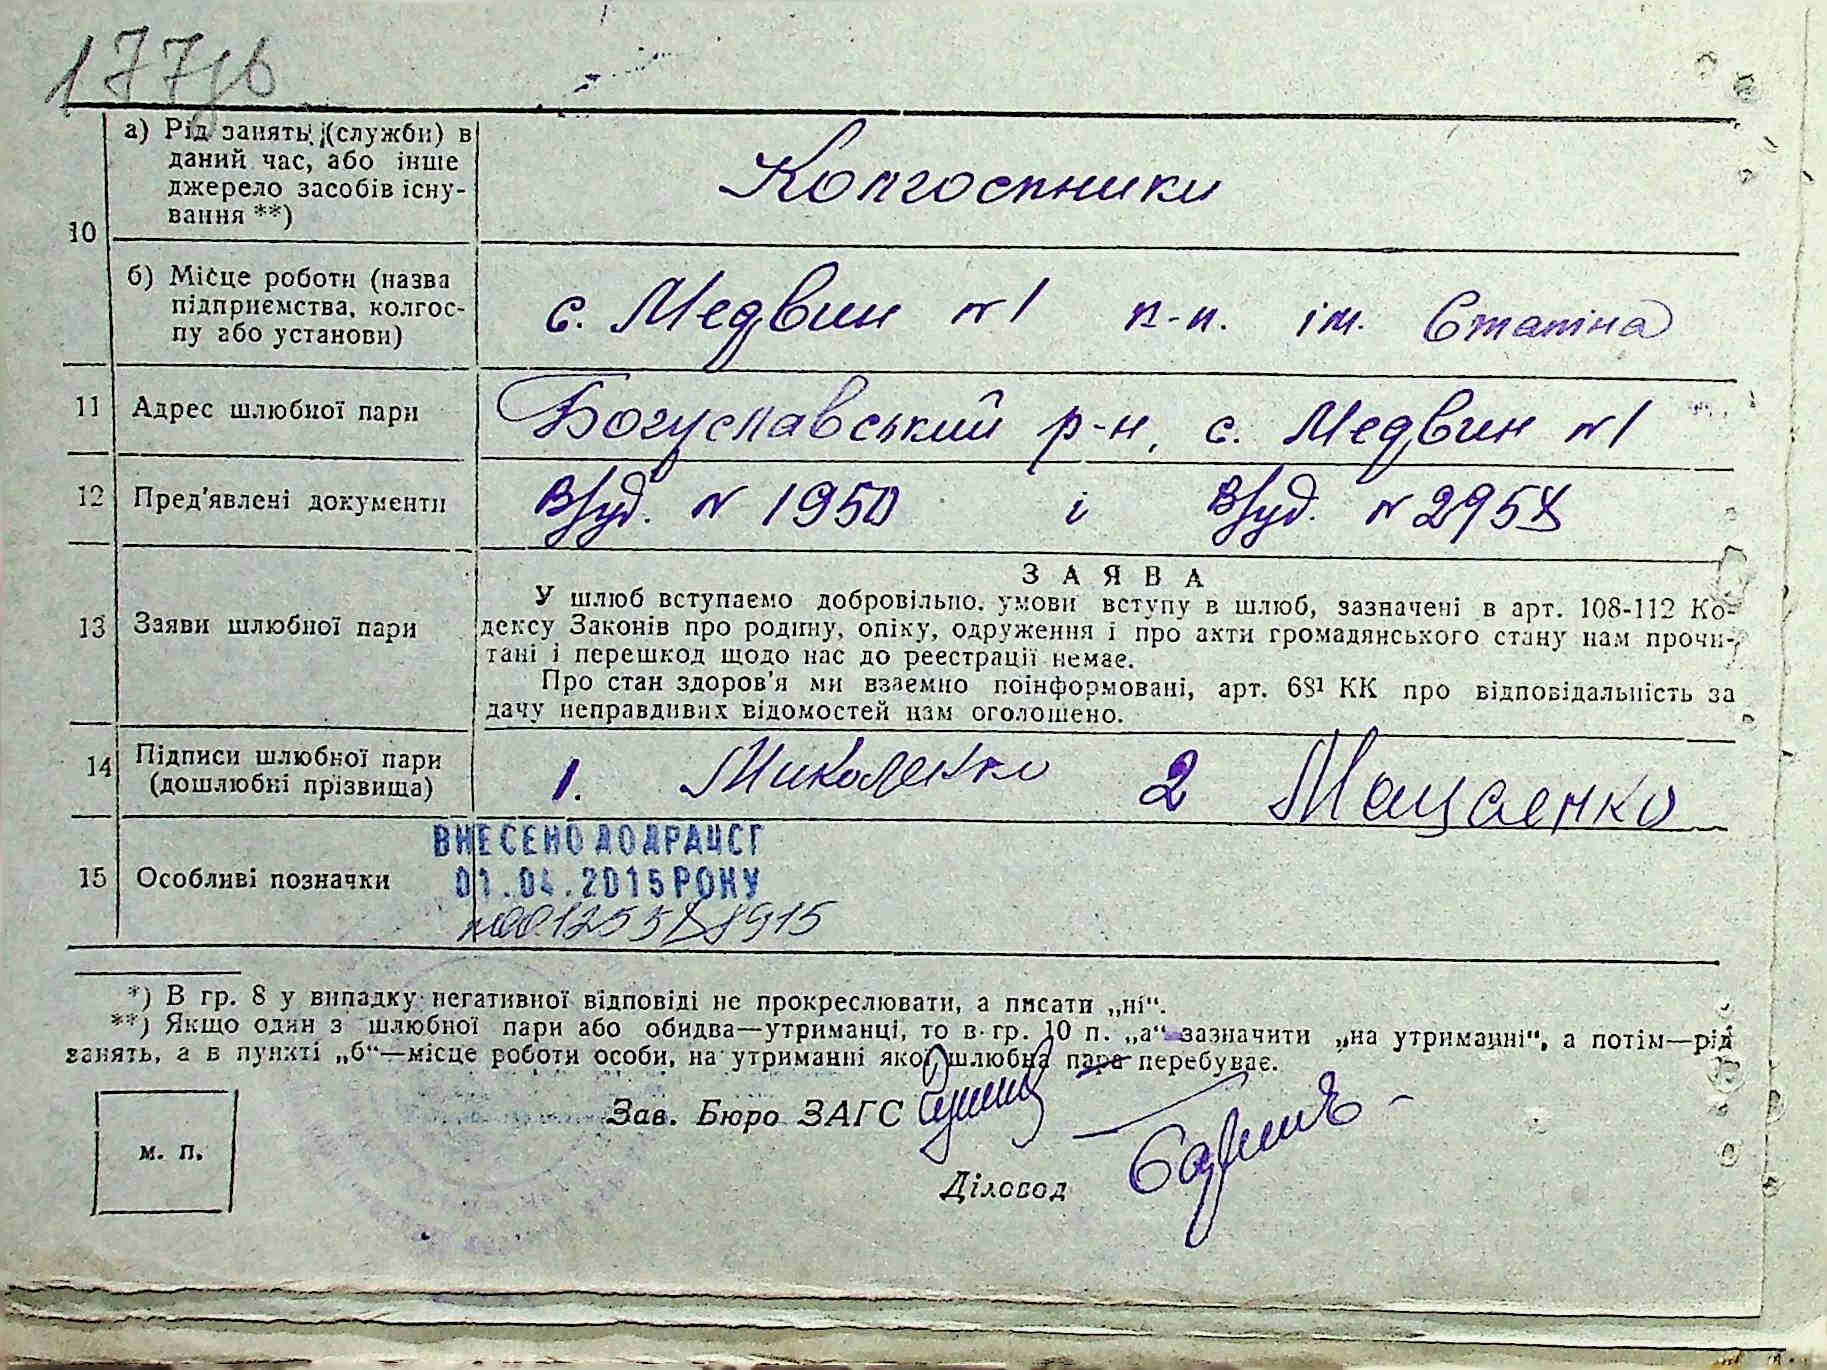 177зв
а) Рід занять (служби) в
даний час, або інше
джерело засобів існу-
вання **)
Колгоспники
10
б) Місце роботи (назва
підприємства, колгос-
пу або установи)
с. Медвин №1 к-п. ім. Сталіна
11 Адрес шлюбної пари Богуславський р-н, с. Медвин №1
12 Пред'явлені документи В/уд. № 1950 і В/уд. № 2958
З А Я В А
13 Заяви шлюбної пари
У шлюб вступаємо добровільно, умови вступу в шлюб, зазначені в арт. 108-112 Ко-
дексу Законів про родину, опіку, одруження і про акти громадянського стану нам прочи-
тані і перешкод щодо нас до реєстрації немає.
Про стан здоров'я ми взаємно поінформовані, арт. 68¹ КК про відповідальність за
дачу неправдивих відомостей нам оголошено.
14 Підписи шлюбної пари
(дошлюбні прізвища)
1. Миколенко 2 Мацаенко
ВНЕСЕНО ДО ДРАЦСГ
15 Особливі позначки 01.04.2015 РОКУ
*) В гр. 8 у випадку негативної відповіді не прокреслювати, а писати „ні“.
**) Якщо один з шлюбної пари або обидва—утриманці, то в гр. 10 п. „а“ зазначити „на утриманні“, а потім—рід
занять, а в пункті „б“—місце роботи особи, на утриманні якої шлюбна пара перебуває.
Зав. Бюро ЗАГС
м. п.
Діловод